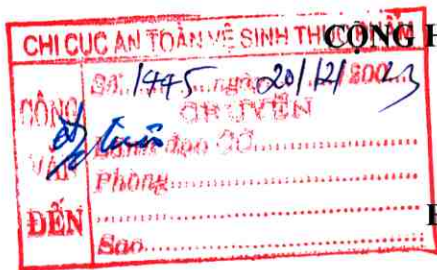 CHI CỤC AN TOÀN VỆ SINH THỰC PHẨM
CỘNG H
CÔNG VĂN ĐẾN
Số: 1445 ngày 20/12/2023
CHUYỂN
Lãnh đạo CC
Phòng
Sao